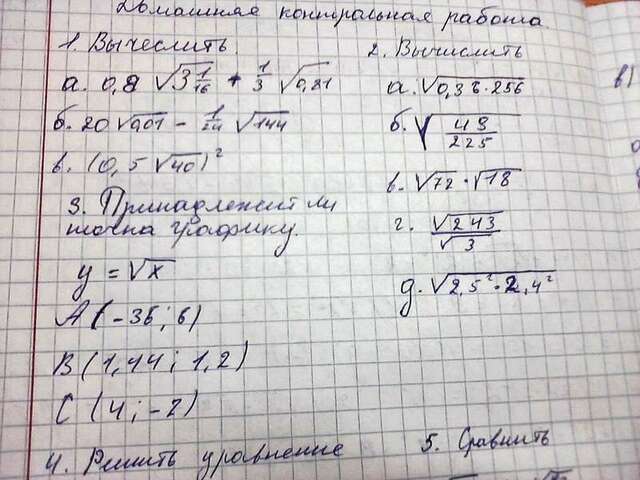 Домашняя контрольная работа.
1. Вычеслить
а. 0,8 √3 1/16 + 1/3 √0,81
б. 20 √0,01 - 1/24 √144
в. (0,5 √40)²
3. Принадлежит ли
точка графику.
y = √x
А (-36; 6)
В (1,44; 1,2)
С (4; -2)
4. Решить уравнение
2. Вычислить
а. √0,36·256
б. √49/225
в. √72 · √18
г. √243/√3
д. √2,5²·2,4²
5. Сравнить
в)